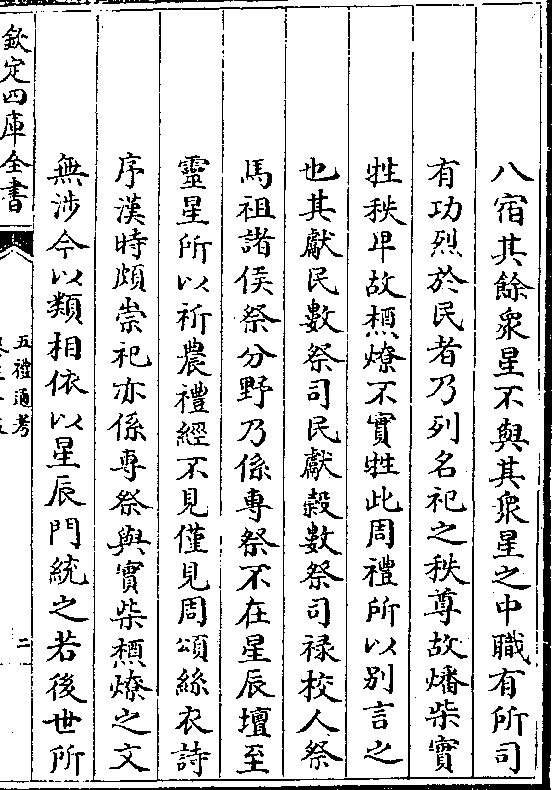 八宿其餘衆星不與其衆星之中職有所司
有功烈於民者乃列名祀之秩尊故燔柴實
牲秩卑故槱燎不實牲此周禮所以别言之
也其獻民數祭司民獻穀數祭司禄校人祭
馬祖諸侯祭分野乃係專祭不在星辰壇至
靈星所以祈農禮經不見僅見周頌絲衣詩
序漢時頗崇祀亦係専祭與實柴槱燎之文
無涉今以類相依以星辰門統之若後世所
欽定四庫全書
五禮通考
二